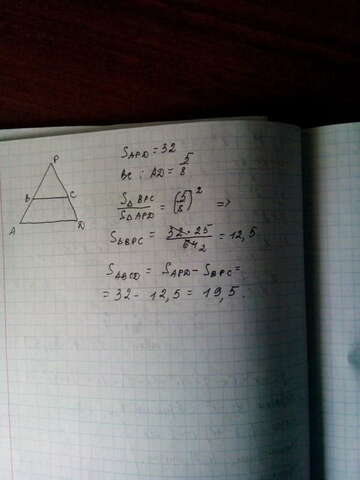 P
B C
A D
S_APD = 32
BC : AD = 5/8
S_ΔBPC / S_ΔAPD = (5/8)^2 =>
S_ΔBPC = 32 · 25 / 64 2 = 12,5
S_ABCD = S_APD - S_BPC =
= 32 - 12,5 = 19,5.